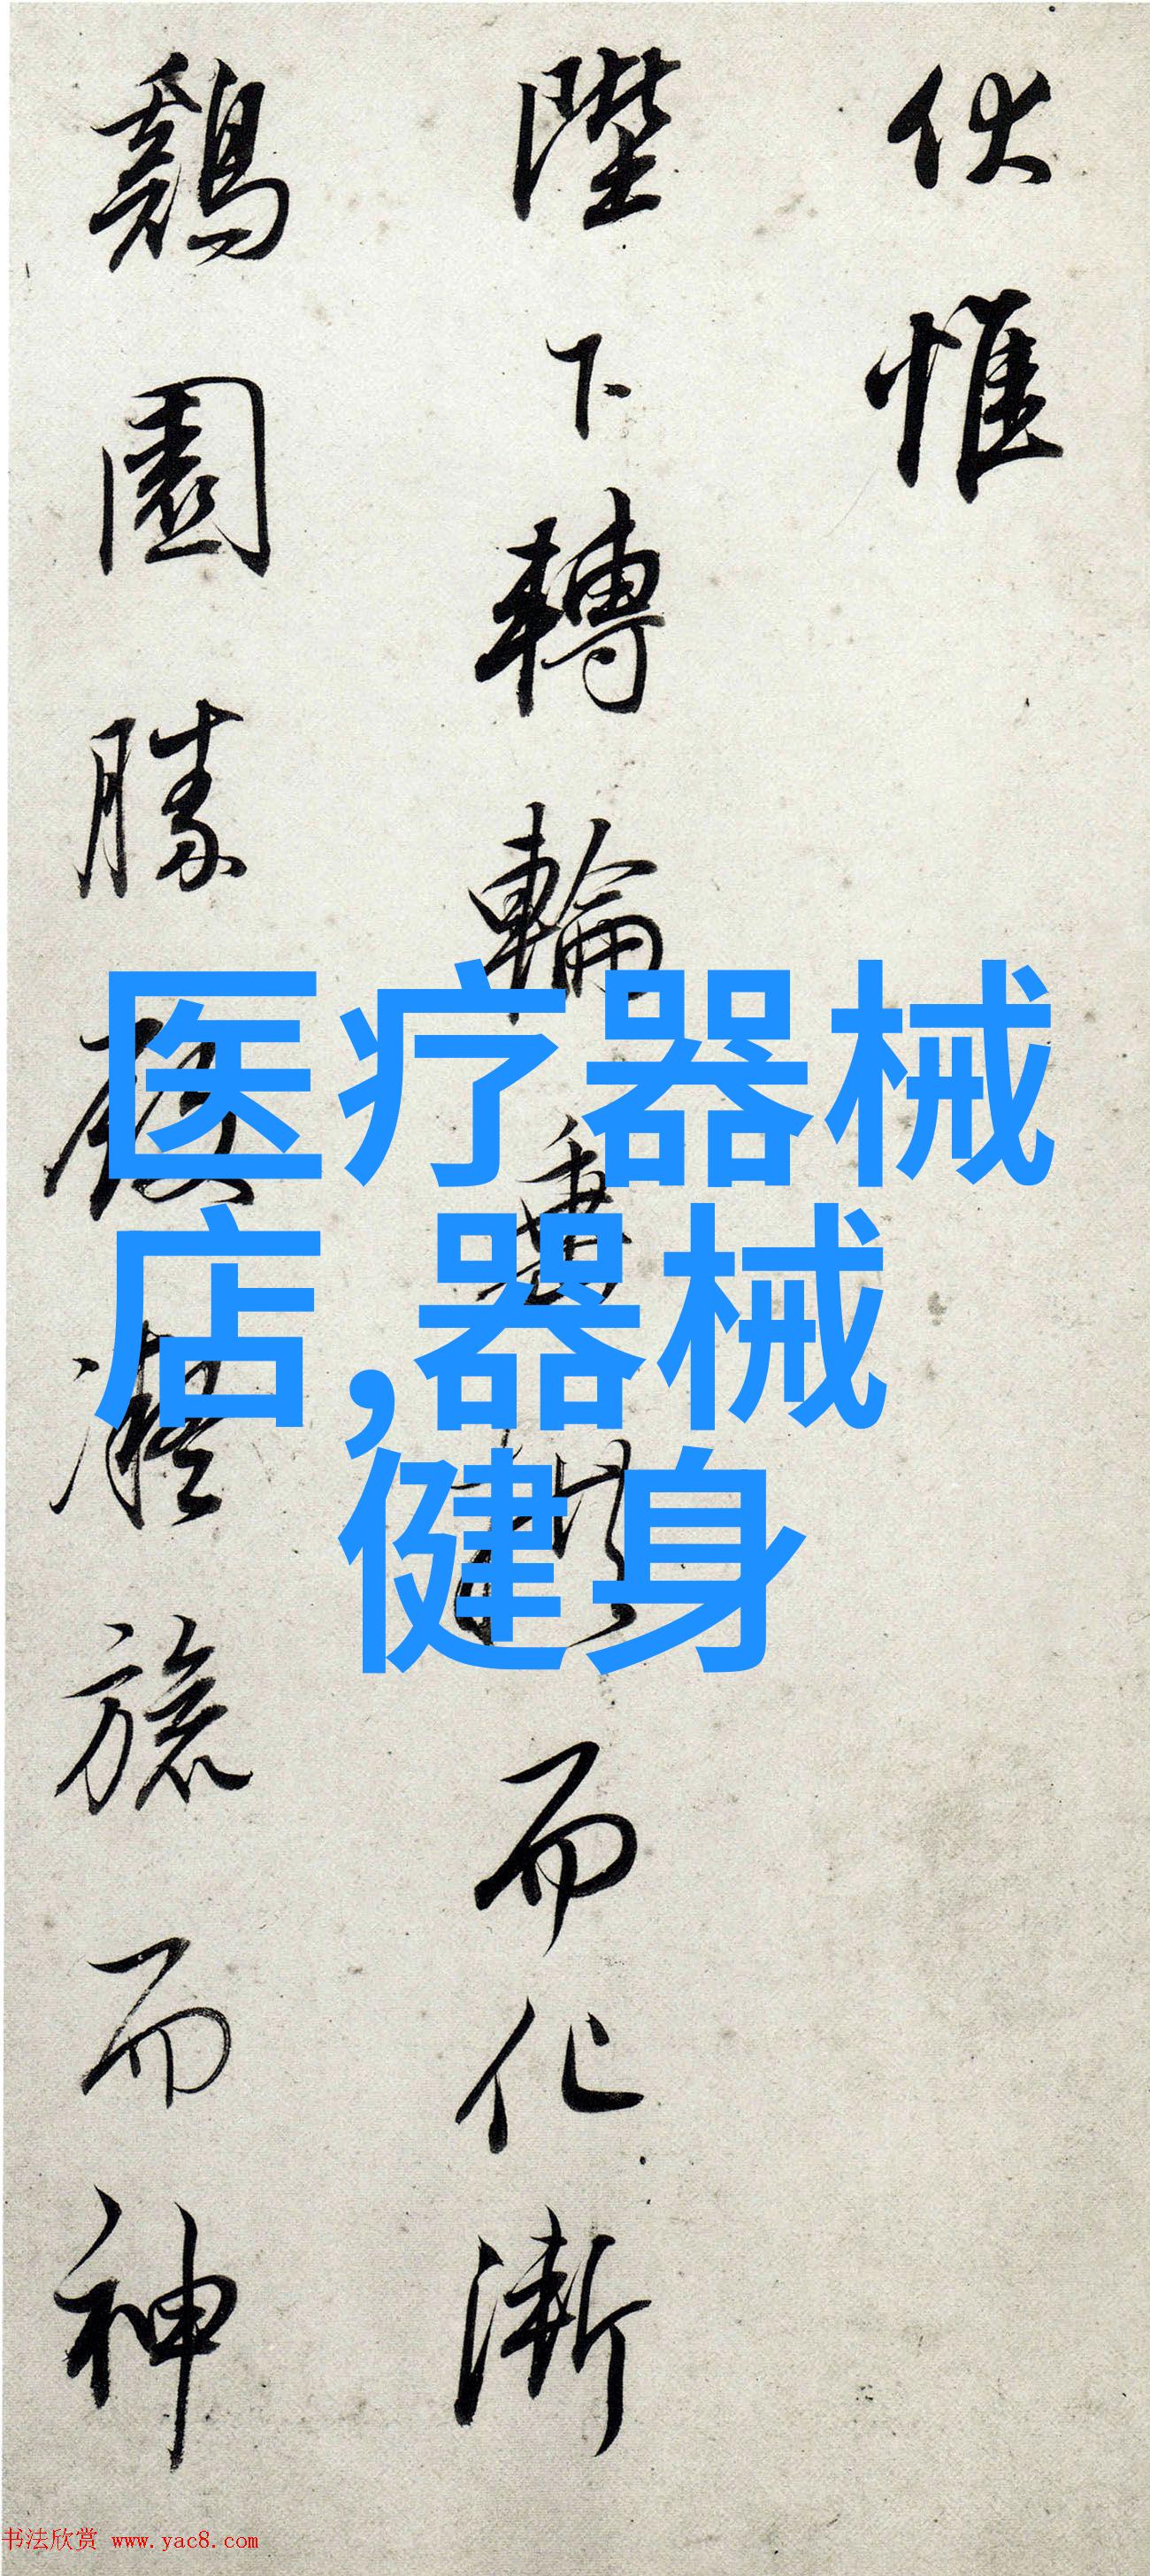 伏惟
陛下轉輪
而化漸
鷄園勝
旅而神
医疗器械
店,器械
健身
书法欣赏 www.yac8.com